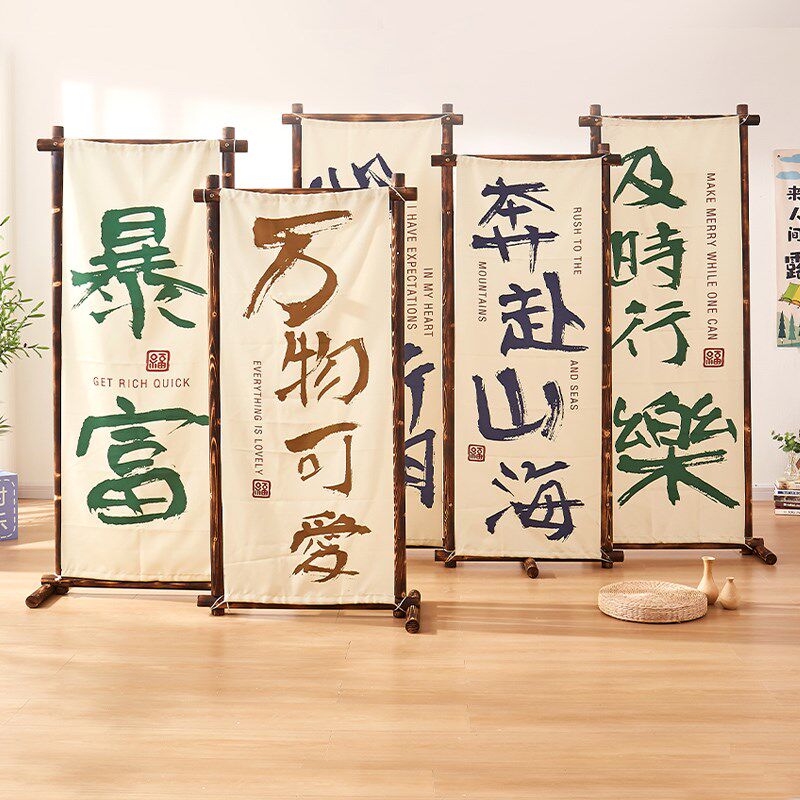 暴富
福
GET RICH QUICK
万物可愛
EVERYTHING IS LOVELY
福
I HAVE EXPECTATIONS
IN MY HEART
奔赴山海
RUSH TO THE
MOUNTAINS
AND SEAS
福
及時行樂
MAKE MERRY WHILE ONE CAN
福
来
人
间
露